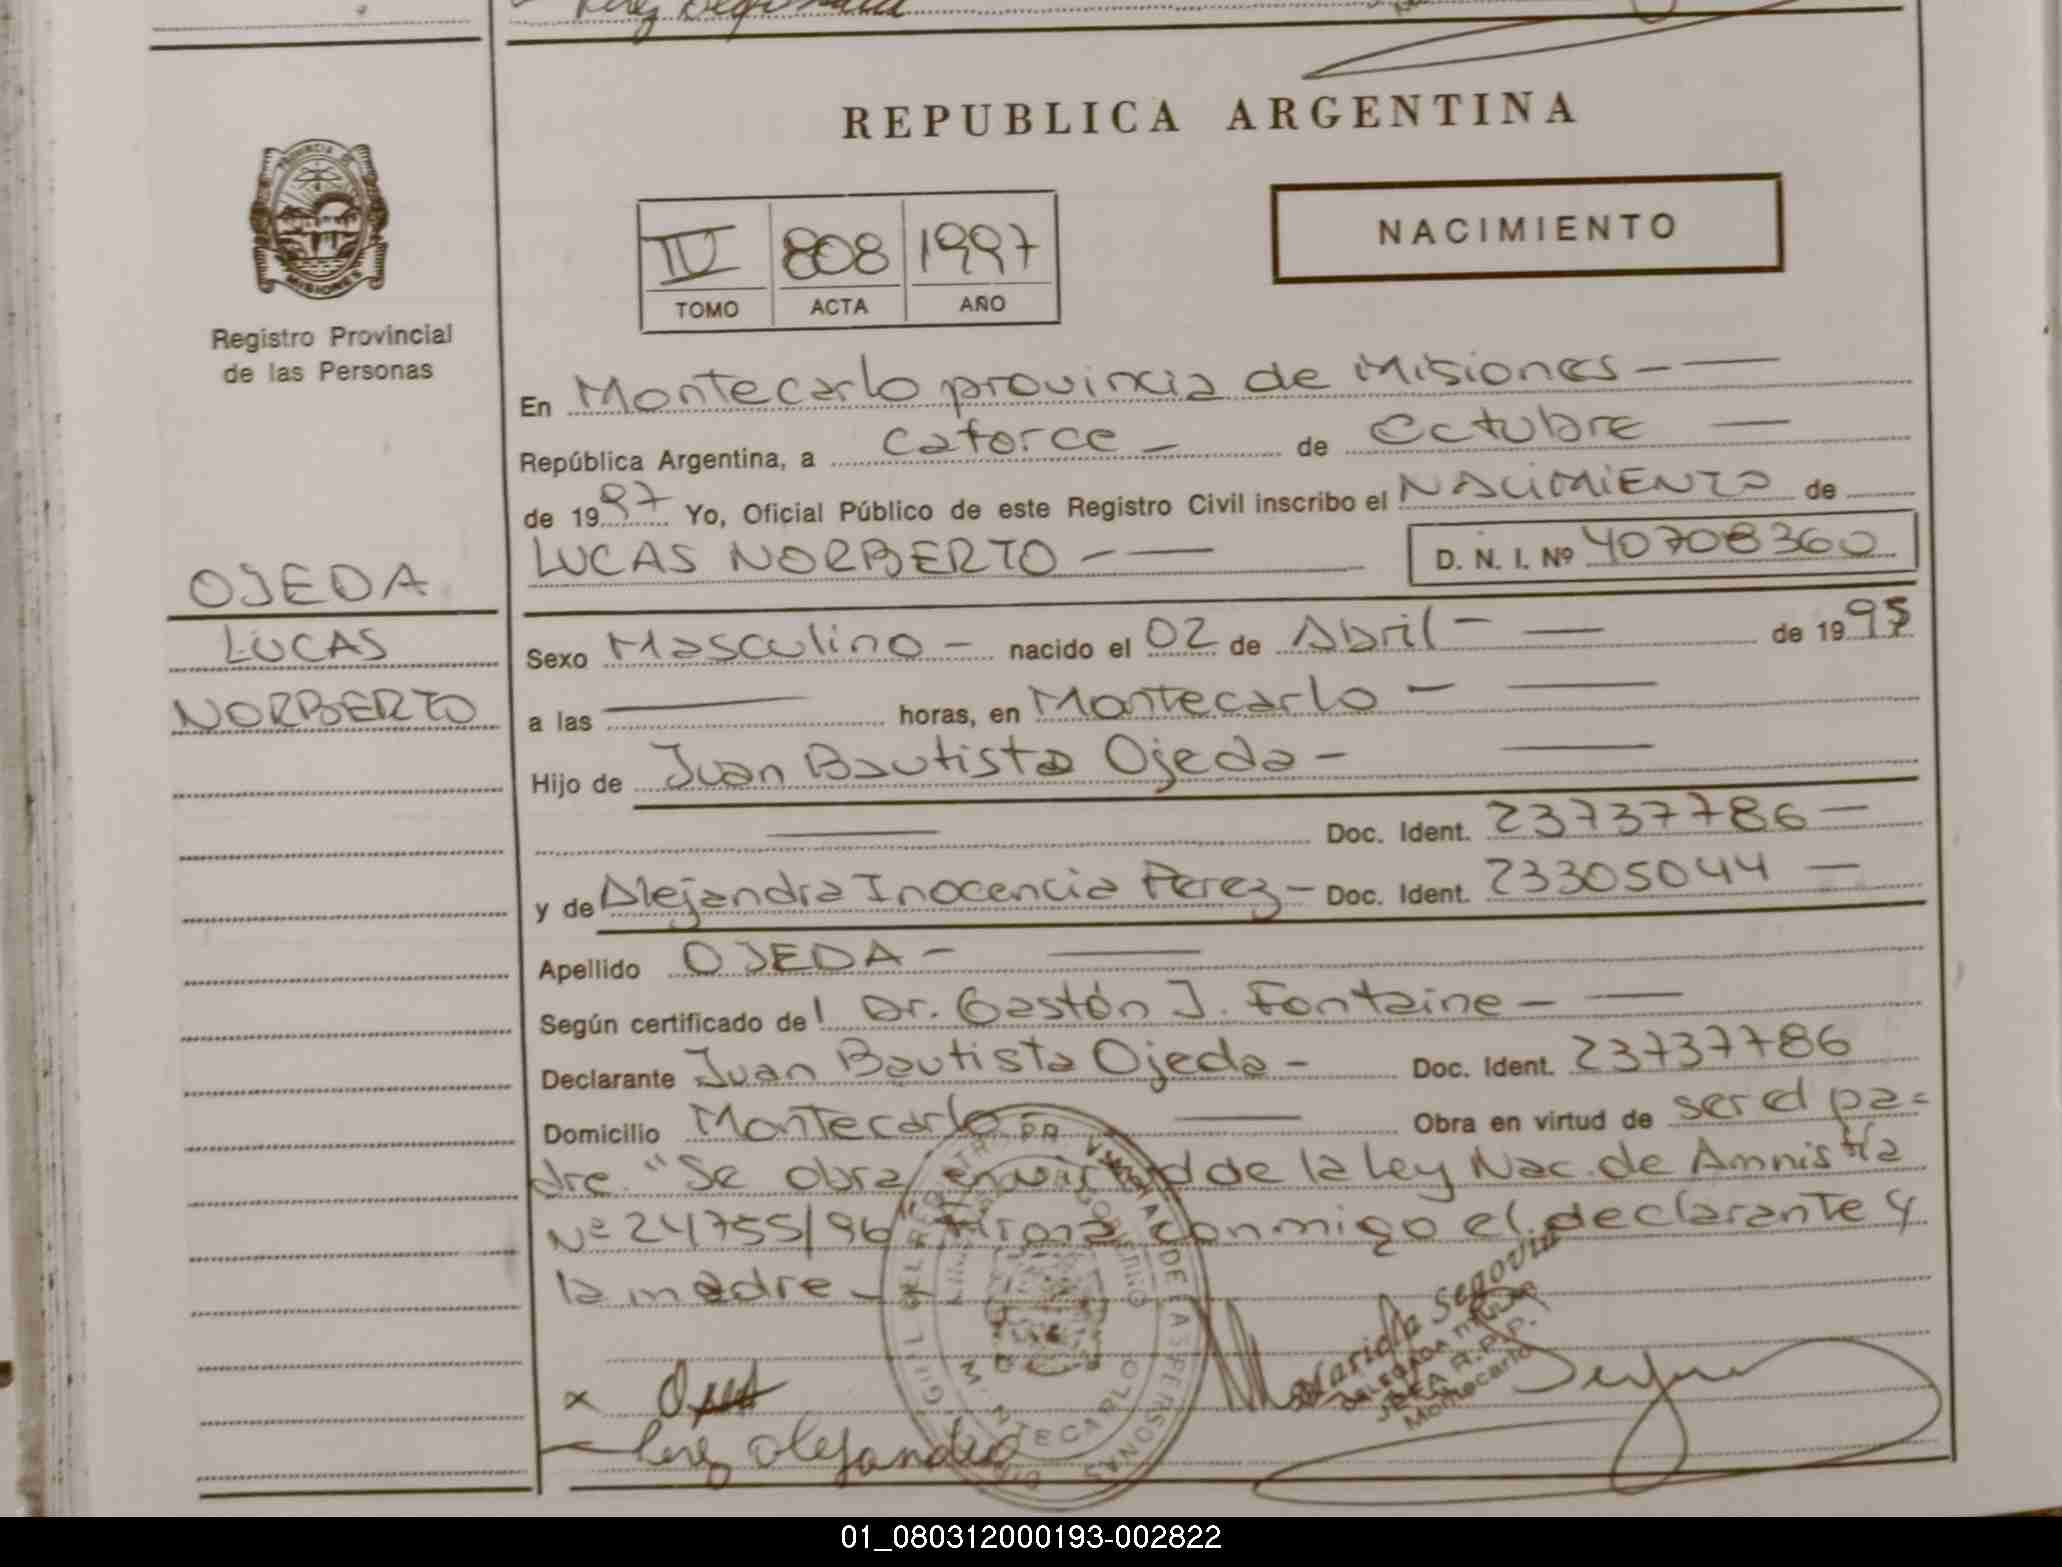 REPUBLICA ARGENTINA
PROVINCIA DE
MISIONES
Registro Provincial
de las Personas
IV 808 1997
TOMO ACTA AÑO
NACIMIENTO
En Montecarlo provincia de Misiones
República Argentina, a catorce de Octubre
de 1997 Yo, Oficial Público de este Registro Civil inscribo el NACIMIENTO de
LUCAS NORBERTO D. N. I. Nº 40708360
OJEDA
LUCAS
NORBERTO
Sexo Masculino nacido el 02 de Abril de 19
a las horas, en Montecarlo
Hijo de Juan Bautista Ojeda
Doc. Ident. 23737786
y de Alejandra Inocencia Perez Doc. Ident. 23305044
Apellido OJEDA
Según certificado del Dr. Gastón J. Fontaine
Declarante Juan Bautista Ojeda Doc. Ident. 23737786
Domicilio Montecarlo Obra en virtud de ser el pa=
dre "Se obra en virtud de la Ley Nac. de Amnistía
Nº 24755/96" Firma conmigo el declarante y
la madre
Mariela Segovia
DELEGADA TITULAR
R.P.P.
Montecarlo
x
Perez Alejandra
MONTECARLO
01_080312000193-002822